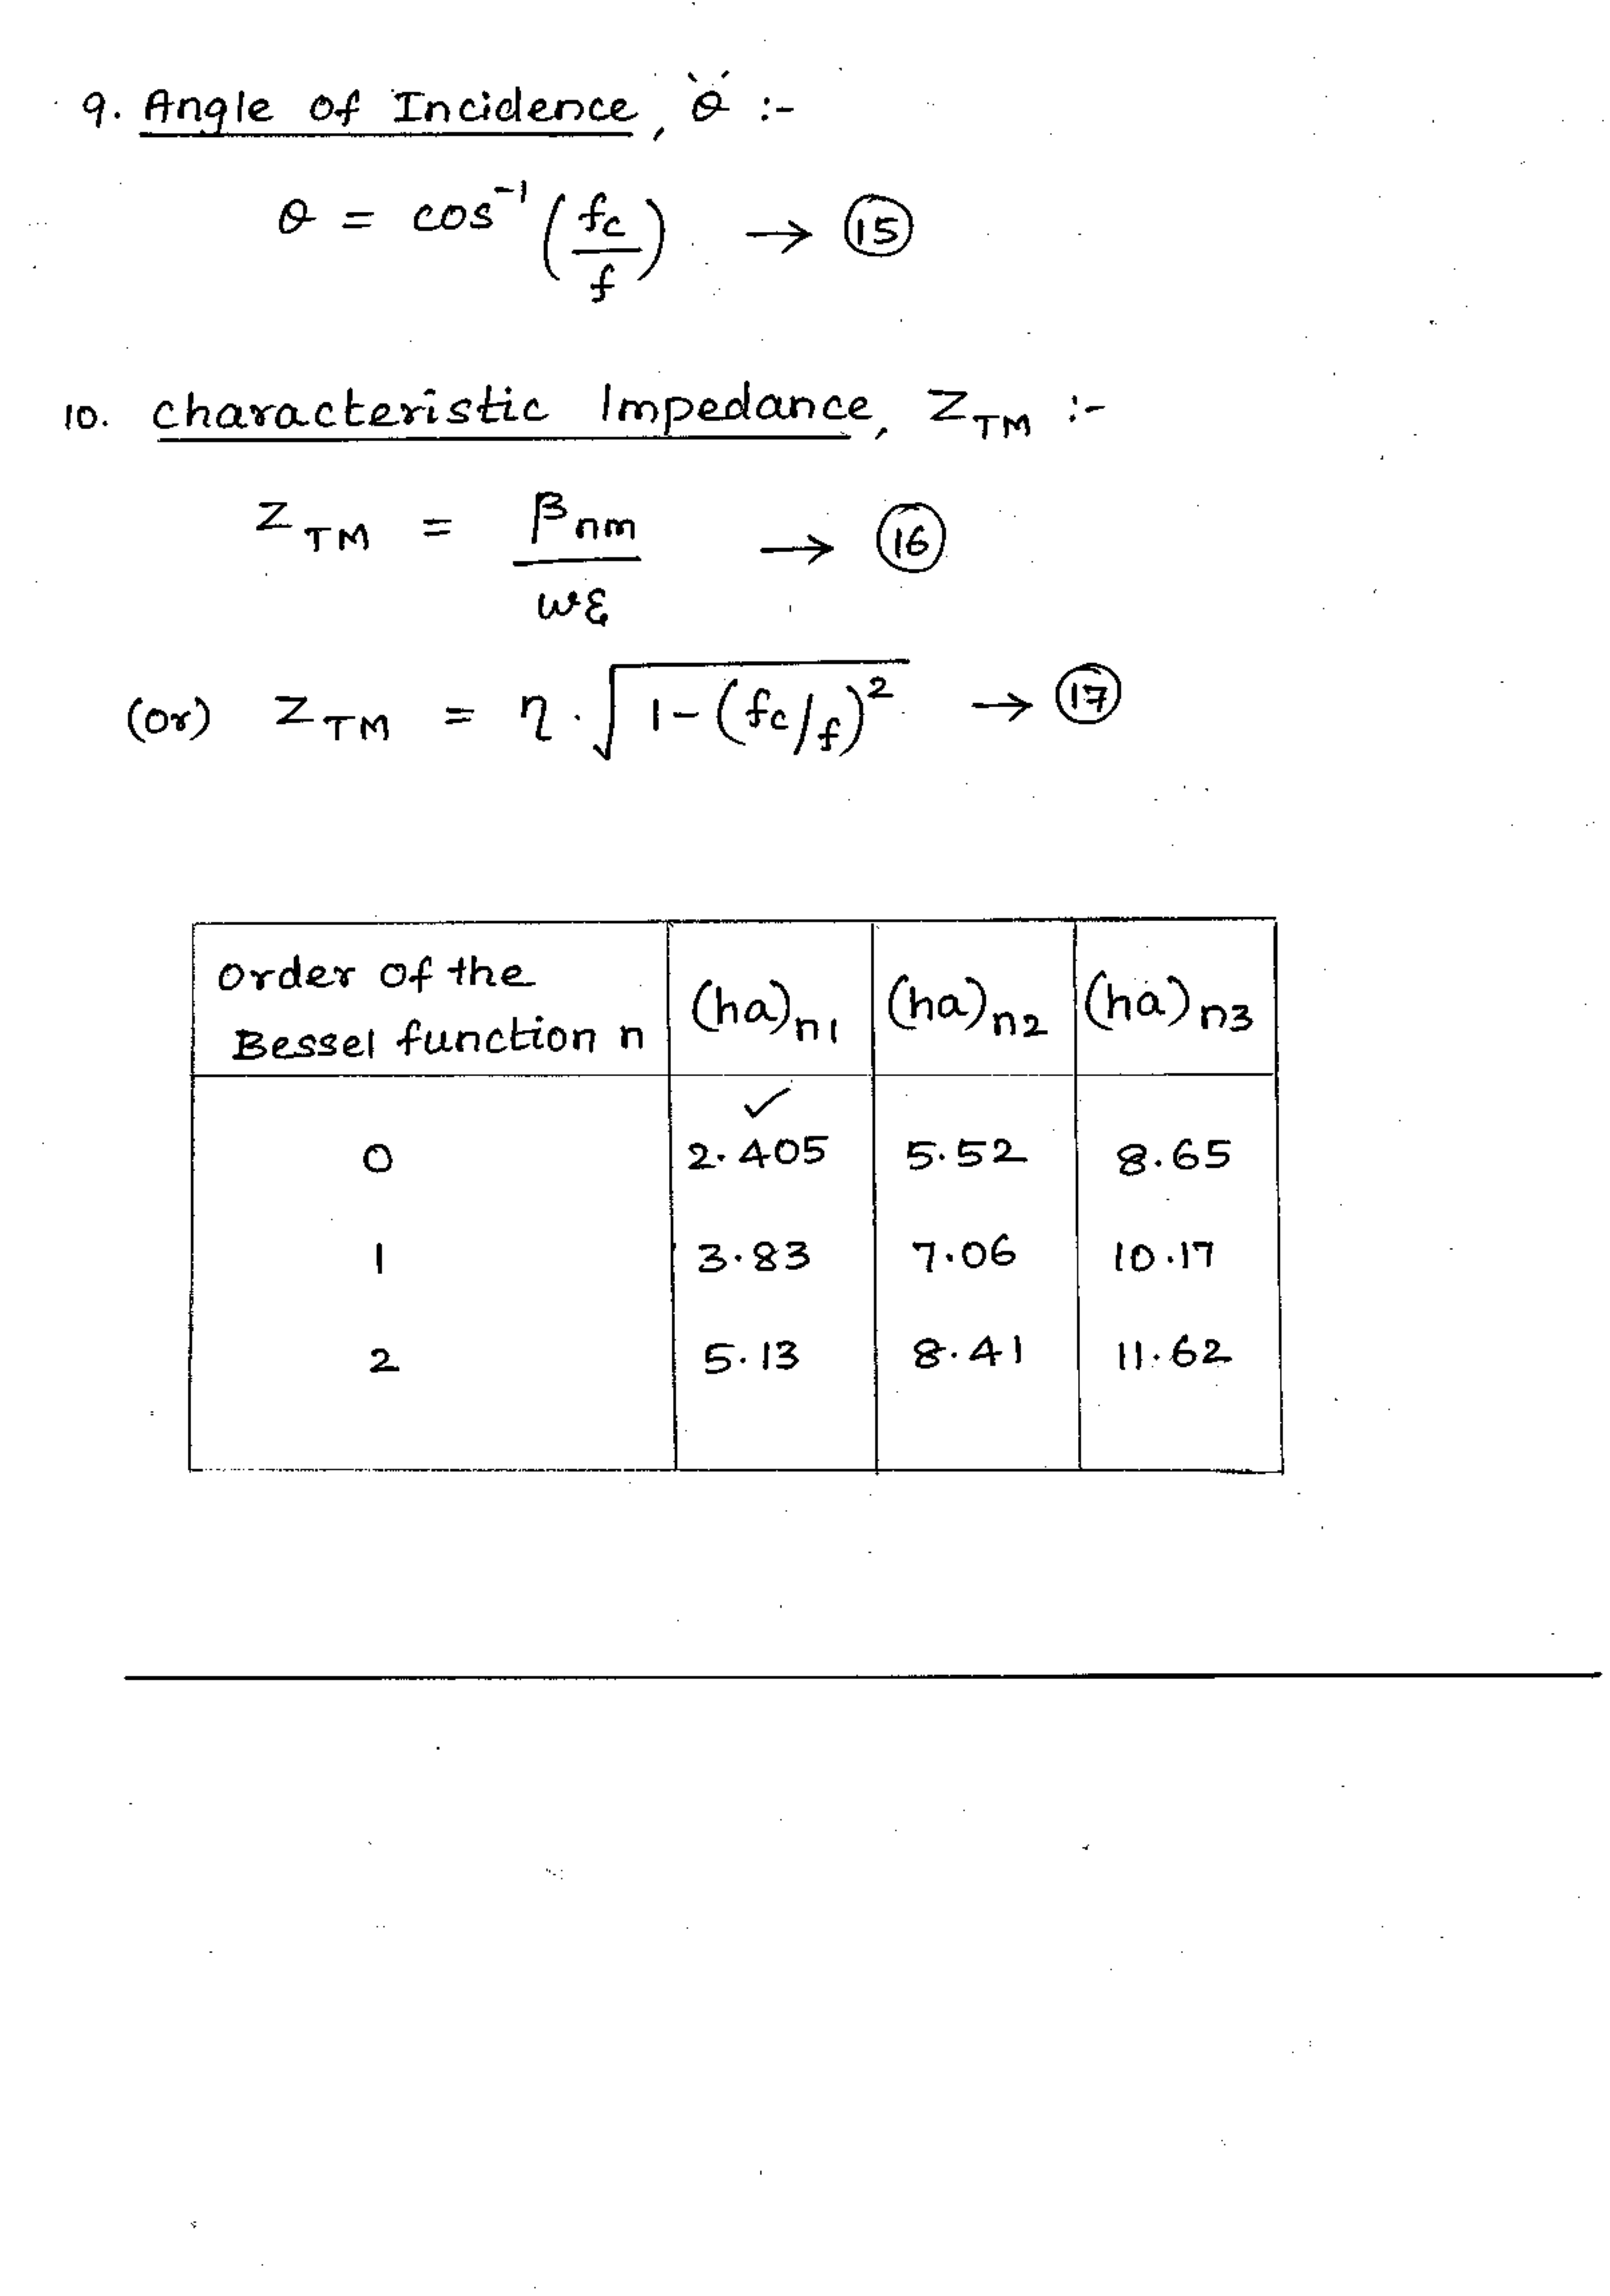 9. Angle of Incidence, 'θ' :-
θ = cos⁻¹ (fc/f) → (15)
10. Characteristic Impedance, Z_TM :-
Z_TM = β_nm / ωε → (16)
(or) Z_TM = η . √(1 - (fc/f)²) → (17)
Order of the Bessel function n | (ha)n1 | (ha)n2 | (ha)n3
0 | ✓ 2.405 | 5.52 | 8.65
1 | 3.83 | 7.06 | 10.17
2 | 5.13 | 8.41 | 11.62